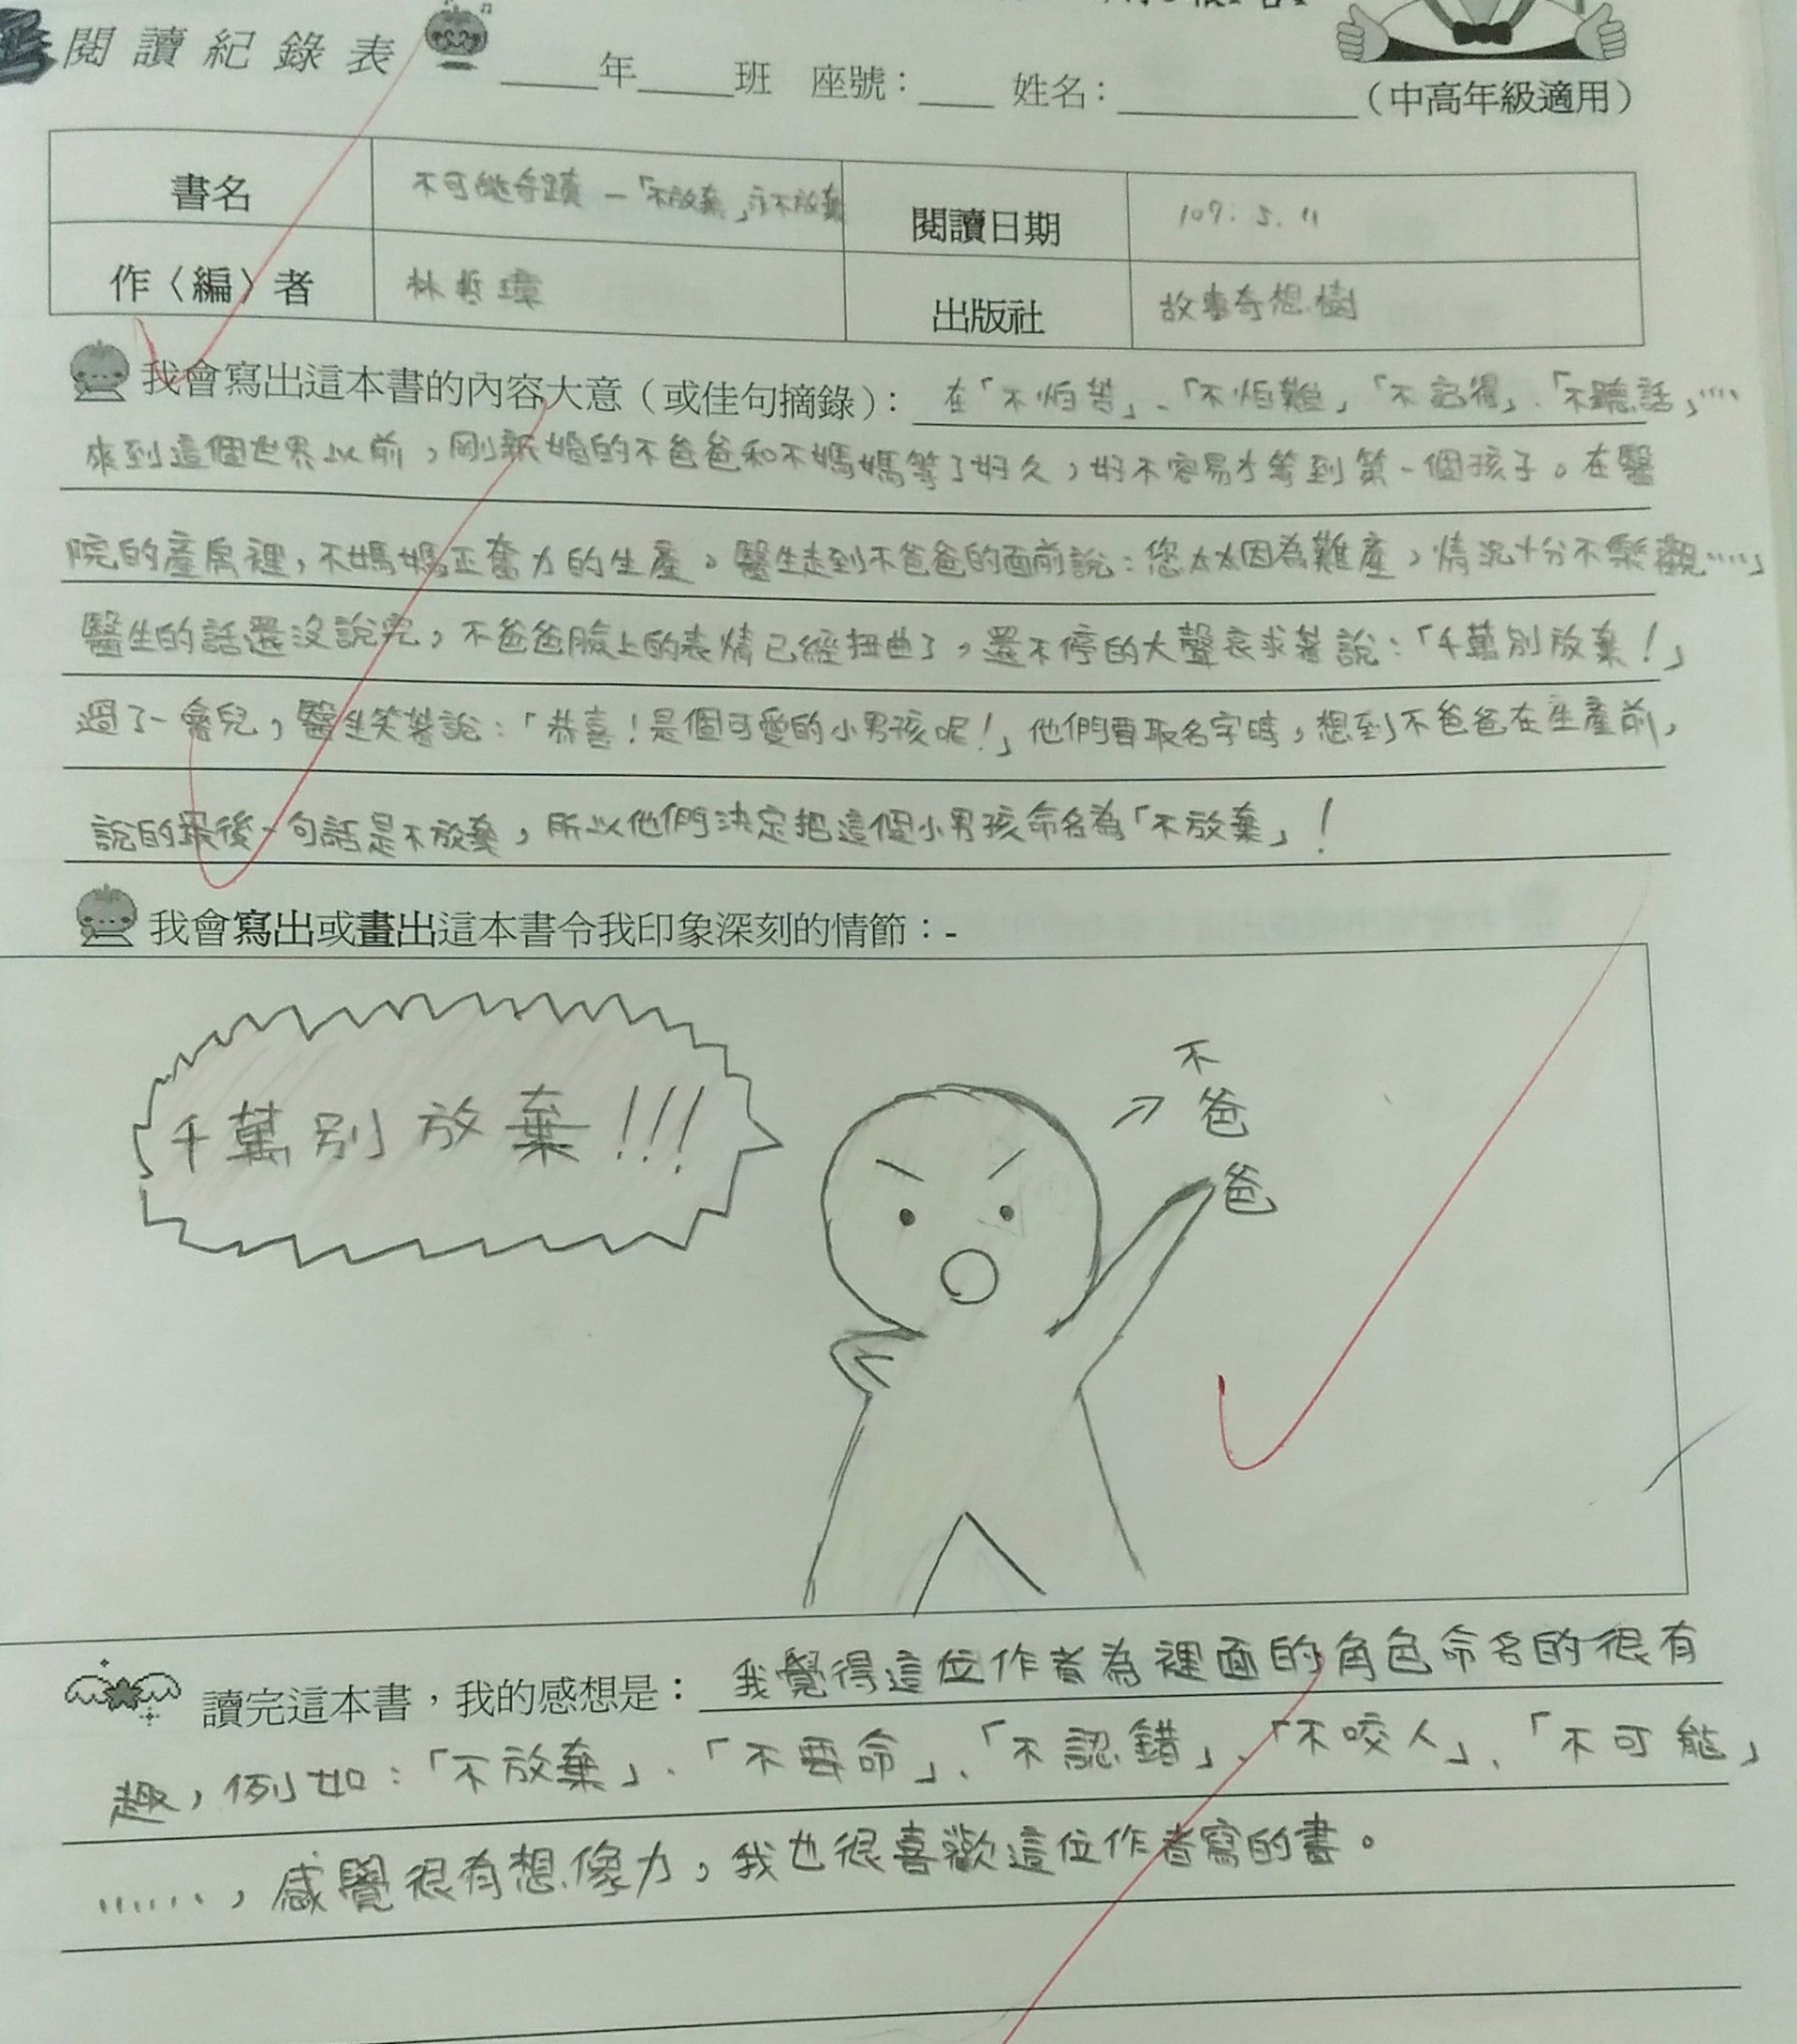 閱讀紀錄表
年 班 座號： 姓名：
（中高年級適用）
書名 不可能奇蹟－「不放棄」永不放棄 閱讀日期 107.5.11
作〈編〉者 林哲璋 出版社 故事奇想樹
我會寫出這本書的內容大意（或佳句摘錄）：在「不怕苦」、「不怕難」「不記得」、「不聽話」……
來到這個世界以前，剛新婚的不爸爸和不媽媽等了好久，好不容易才等到第一個孩子。在醫
院的產房裡，不媽媽正奮力的生產。醫生走到不爸爸的面前說：您太太因為難產，情況十分不樂觀……」
醫生的話還沒說完，不爸爸臉上的表情已經扭曲了，還不停的大聲哀求著說：「千萬別放棄！」
過了一會兒，醫生笑著說：「恭喜！是個可愛的小男孩呢！」他們要取名字時，想到不爸爸在生產前，
說的最後一句話是不放棄，所以他們決定把這個小男孩命名為「不放棄」！
我會寫出或畫出這本書令我印象深刻的情節：-
千萬別放棄!!!
不爸爸
讀完這本書，我的感想是：我覺得這位作者為裡面的角色命名的很有
趣，例如：「不放棄」、「不要命」、「不認錯」、「不咬人」、「不可能」
……，感覺很有想像力，我也很喜歡這位作者寫的書。